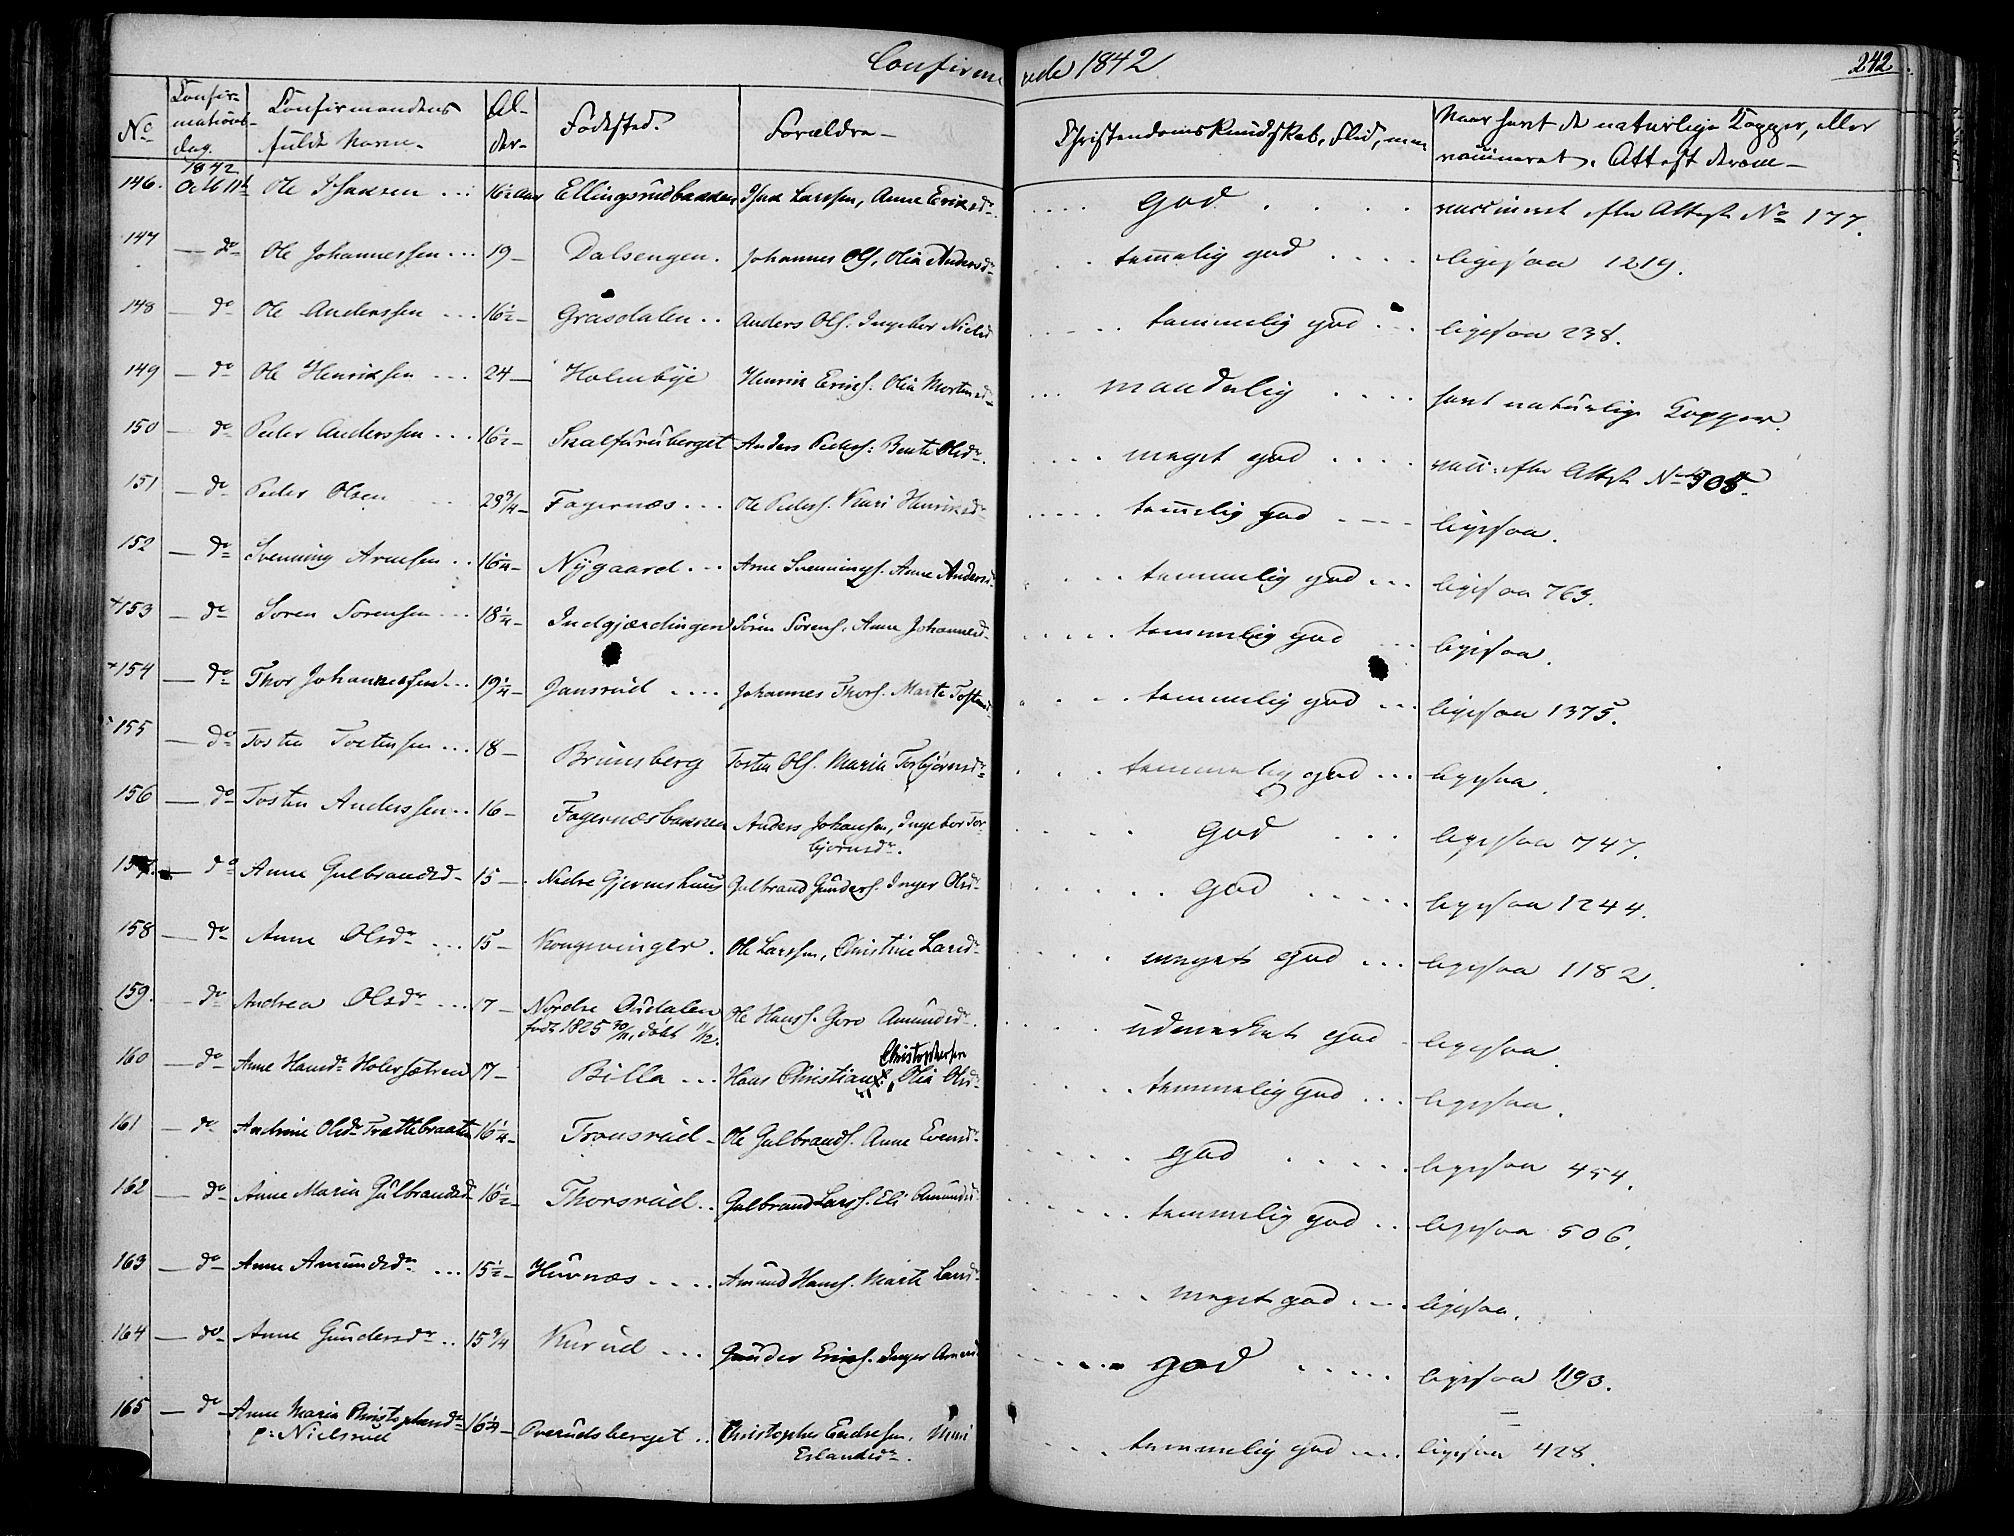 Confirmerede 1842.
242
No
Confirmations dag.
Confirmandens fulde Navn.
Alder
Fødested.
Forældre
Christendoms Kundskab, Flid,
Naar havt de naturlige Kopper, eller vaccineret. Attest derom
1842
146. Octb 11te Ole Isaksen 16½ Aar Ellingsrudbakken Isak Larssen, Anne Eriksdr. God vaccineret efter Attest No 177.
147 — do Ole Johannessen 19 — Dalsengen. Johannes Ols. Olia Andersdr temelig god ligesaa 1219.
148 — do Ole Anderssen 16½ — Grasdalen Anders Ols. Ingebor Nielsd temmelig god ligesaa 238.
149 — do Ole Henriksen 24 — Holmbye Henrik Eriks. Olia Mortensd maadelig havt naturlige Kopper.
150 — do Peder Anderssen 16½ — Skalfuruberget Anders Peders. Bente Olsdr. meget god vacc. efter Attest No 905.
151 — do Peder Olsen 23¾ — Fagernæs Ole Peders. Kari Henriksdr temelig god ligesaa.
152 — do Svenning Arnesen 16¼ — Nygaard Arne Svennings. Anne Andersd temmelig god ligesaa 763.
+153 — do Søren Sørensen 18¼ — Indgjærdingen Søren Sørens. Anne Johannesd temmelig god ligesaa.
+154 — do Thor Johannessen 19¼ — Jansrud Johannes Thors. Marte Tostensd temmelig god ligesaa 1375.
155 — do Tosten Tostensen 18 — Brunsberg Tosten Ols. Maria Torbjørnsdr temmelig god ligesaa.
156 — do Tosten Anderssen 16 — Fagernæsbakken Anders Johansen, Ingebor Tor-
bjørnsdr. God ligesaa 747.
157. — do Anne Gulbrandsd 15 — Nedre Gjermshuus Gulbrand Gunders. Inger Olsdr god ligesaa 1244.
158 — do Anne Olsdr 15 — Kongsvinger. Ole Larssen, Christine Larsdr meget god ligesaa 1182.
159. — do Andrea Olsdr 17 — Nordre Oudalen
født 1825 30/11, døbt 11/12. Ole Hanss. Goro Amundsdr. udmerket god ligesaa
160 — do Anne Hansdr Holersætren 17 — Billa Hans Christians. Olia Olsdr temmelig god ligesaa.
Christophersen
161 — do Andrine Olsdr Trættebraaten 16¼ — Tronsrud Ole Gulbrands. Anne Evensdr god ligesaa 454.
162 — do Anne Maria Gulbrandsd 16½ — Thorsrud Gulbrand Larss. Eli Amundsd temmelig god ligesaa 506.
163 — do Anne Amundsdr 15½ — Huvnæs Amund Hans. Marte Larsdr meget god ligesaa.
164 — do Anne Gundersdr 15¾ Kurud Gunder Eriks. Inger Amund god ligesaa 1193.
165 — do Anne Maria Christophersdr
p: Nielsrud 16¼ — Overudsberget Christopher Endresen, Unni
Erlandsdr. temmelig god ligesaa 428.